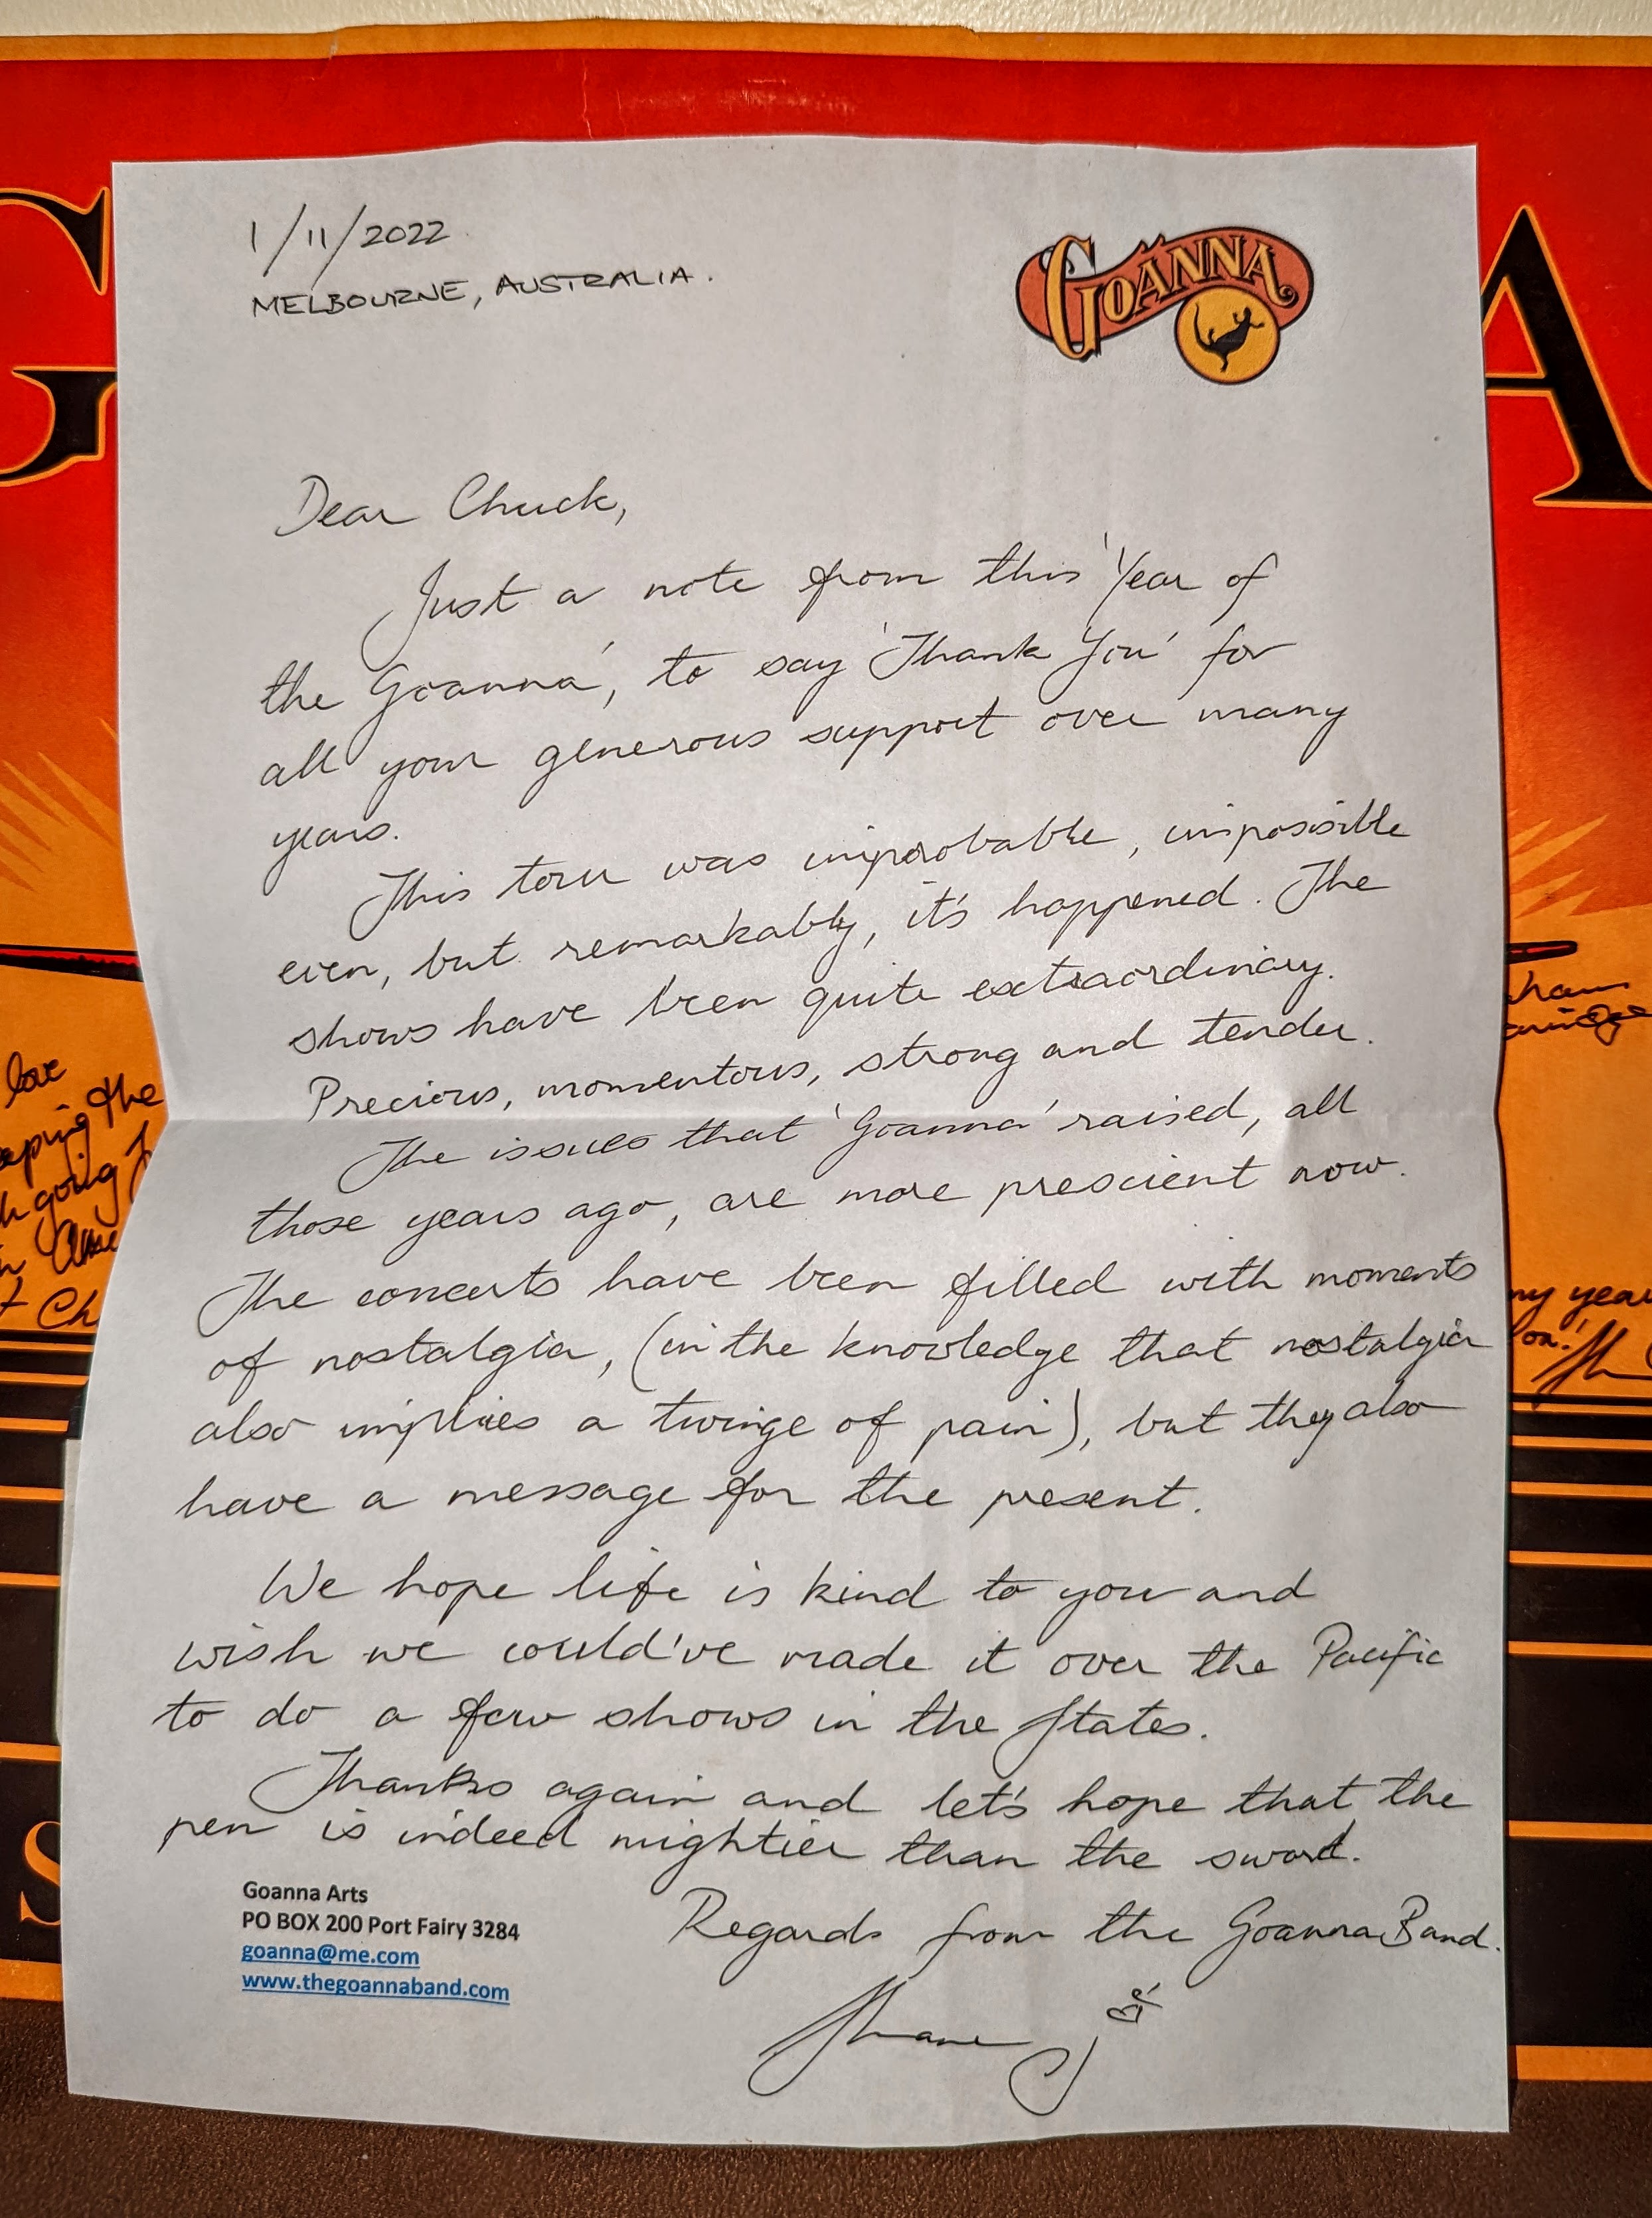 G
A
1/11/2022
MELBOURNE, AUSTRALIA.
GOANNA
Dear Chuck,
Just a note from this 'Year of
the Goanna', to say 'Thank You' for
all your generous support over many
years.
This tour was improbable, impossible
even, but remarkably, it's happened. The
shows have been quite extraordinary.
Precious, momentous, strong and tender.
The issues that 'Goanna' raised, all
those years ago, are more prescient now.
The concerts have been filled with moments
of nostalgia, (in the knowledge that nostalgia
also implies a twinge of pain), but they also
have a message for the present.
We hope life is kind to you and
wish we could've made it over the Pacific
to do a few shows in the States.
Thanks again and let's hope that the
pen is indeed mightier than the sword.
Regards from the Goanna Band.
Shane
Goanna Arts
PO BOX 200 Port Fairy 3284
goanna@me.com
www.thegoannaband.com
love
the
going
Ch
S